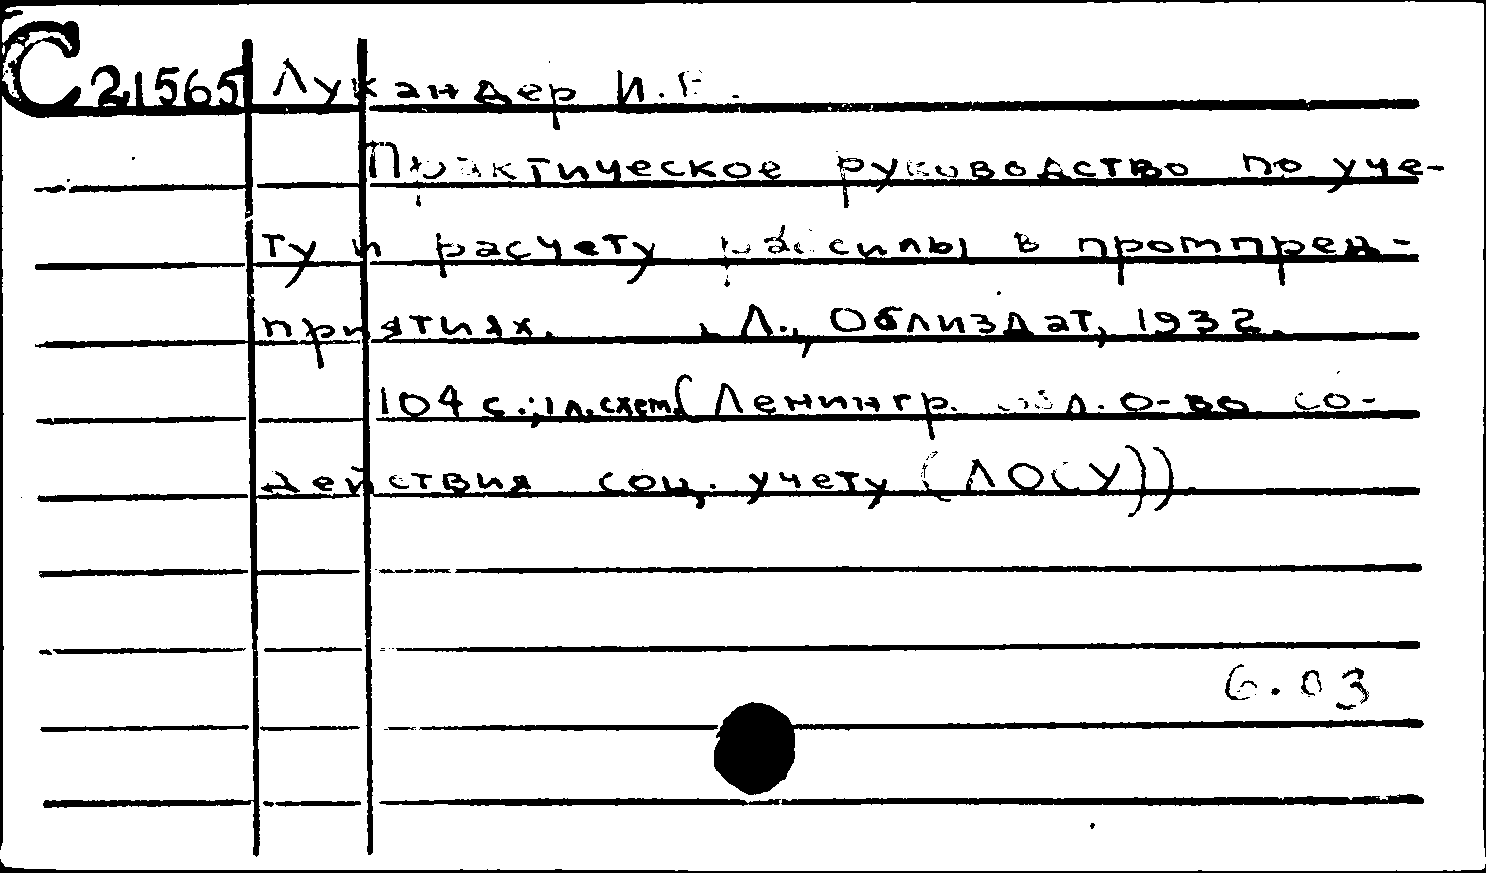 С 21565 Лукандер И.Е.
Практическое руководство по уче-
ту и расчету рабсилы в промпред-
приятиях. , Л., Облиздат, 1932.
104 с.; 1 л. схем. (Ленингр. обл. о-во со-
действия соц. учету (ЛОСУ)).
6.03